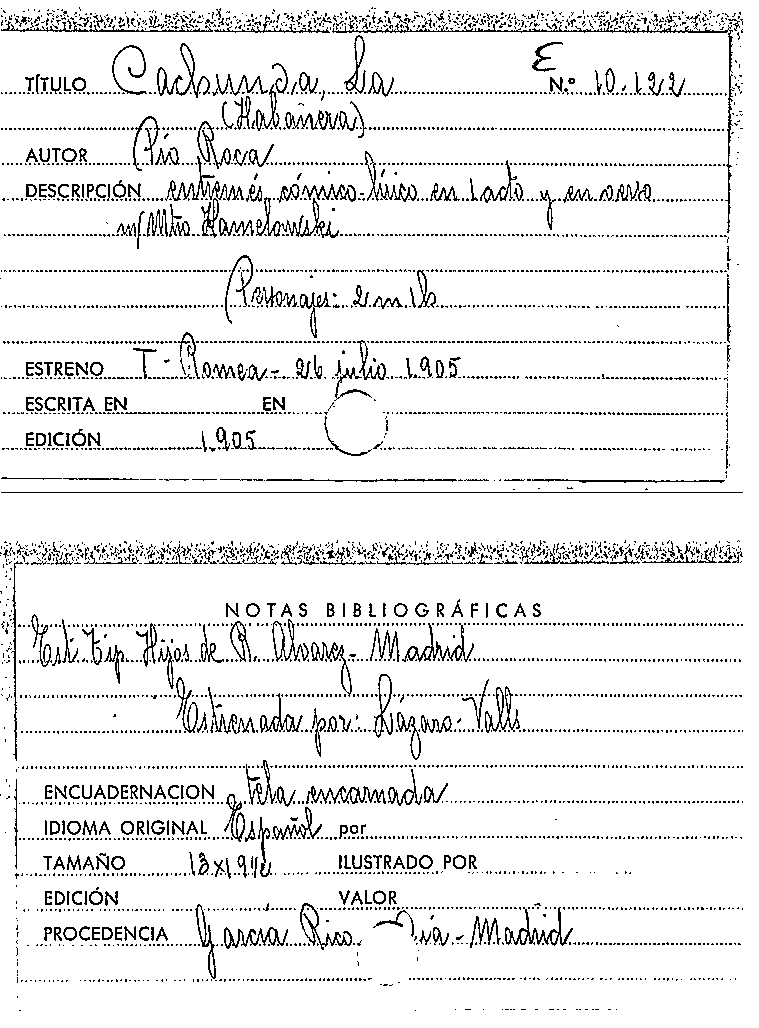 E
TÍTULO Cachunda, La N.º 10.122
(Habanera)
AUTOR Pío Roca
DESCRIPCIÓN entremés, cómico-lírico en 1 acto y en verso
m/ Mtro Hamelowski
Personajes: 2 m 1 h
ESTRENO T - Romea - 26 julio 1.905
ESCRITA EN EN
EDICIÓN 1.905
NOTAS BIBLIOGRÁFICAS
Est. Tip. Hijos de R. Alvarez - Madrid
Estrenada por: Lázaro-Valls
ENCUADERNACION tela encarnada
IDIOMA ORIGINAL Español por
TAMAÑO ILUSTRADO POR
EDICIÓN VALOR
PROCEDENCIA García Rico - Madrid